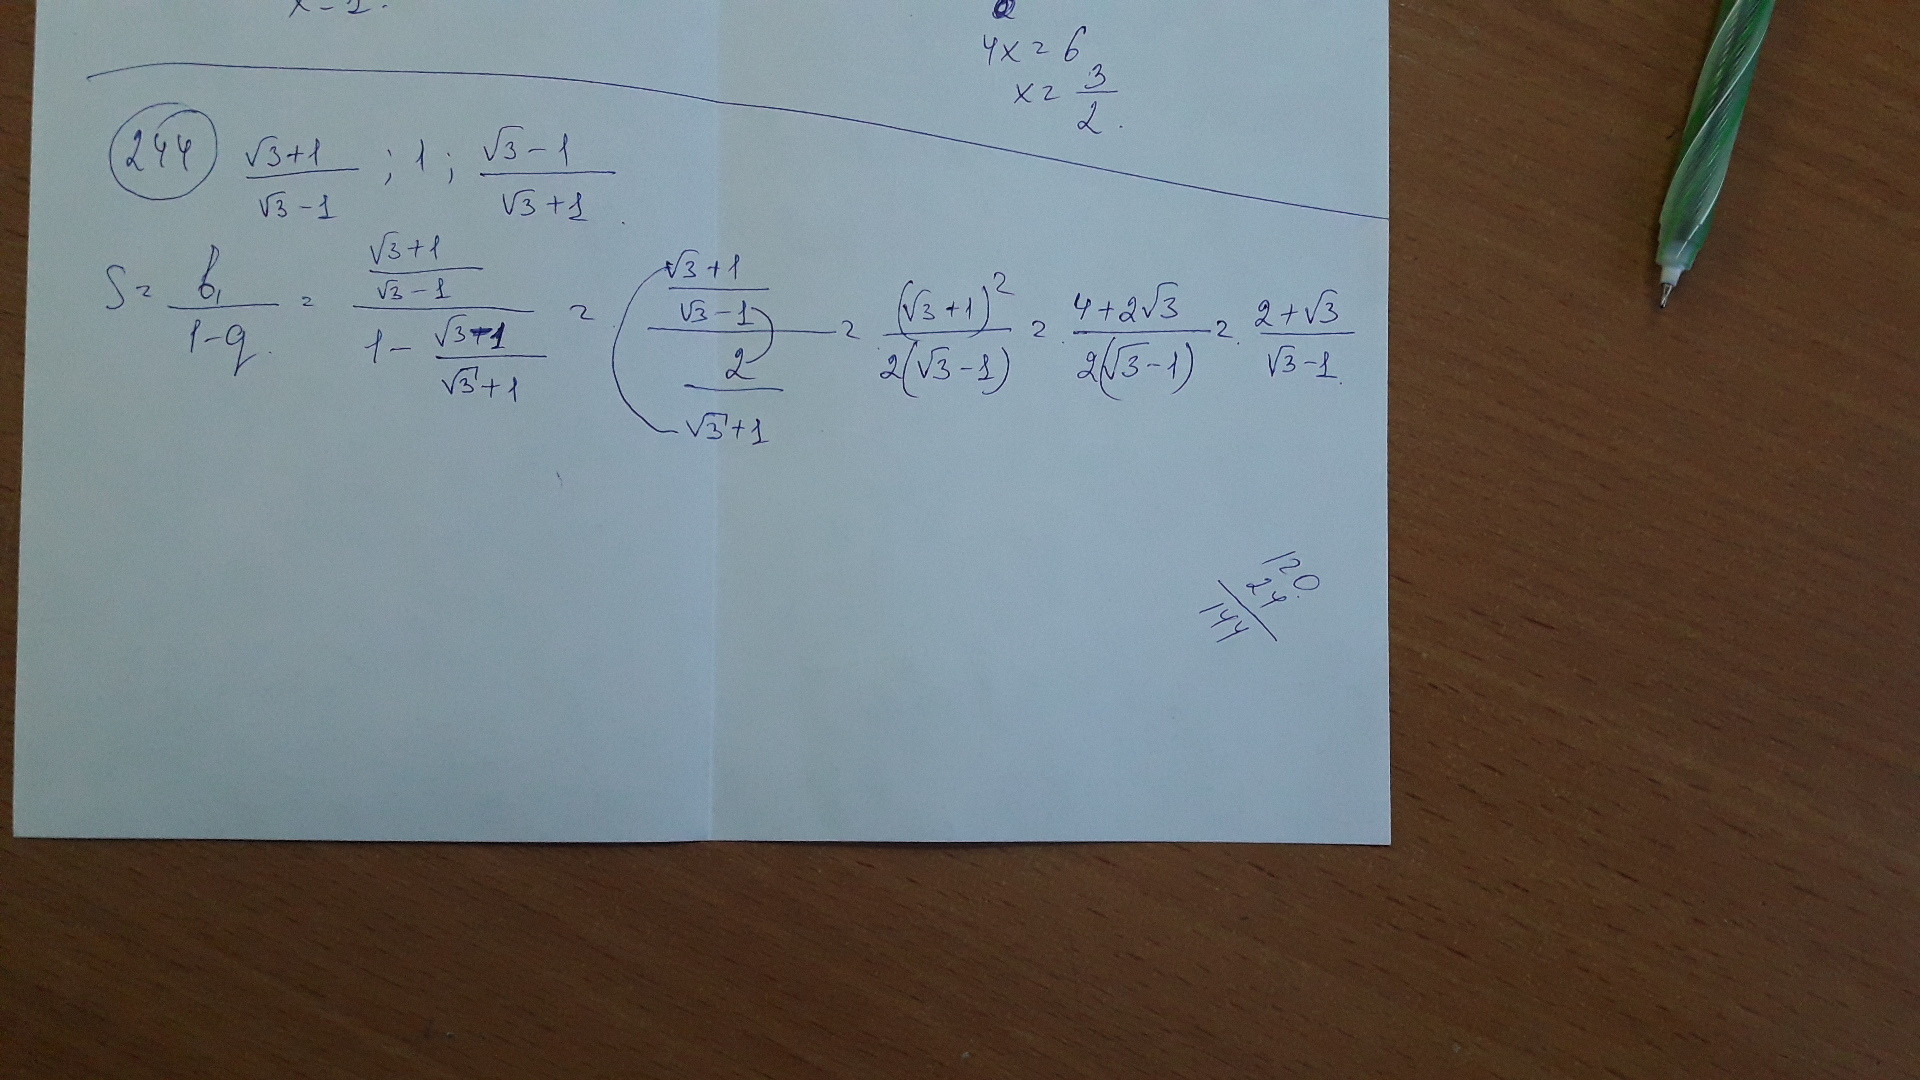 x = 1.
4x = 6
x = 3/2.
244 (√3+1)/(√3-1) ; 1 ; (√3-1)/(√3+1).
S = b₁/(1-q) = ((√3+1)/(√3-1))/(1-(√3-1)/(√3+1)) = ((√3+1)/(√3-1))/(2/(√3+1)) = (√3+1)²/(2(√3-1)) = (4+2√3)/(2(√3-1)) = (2+√3)/(√3-1).
120
24
144